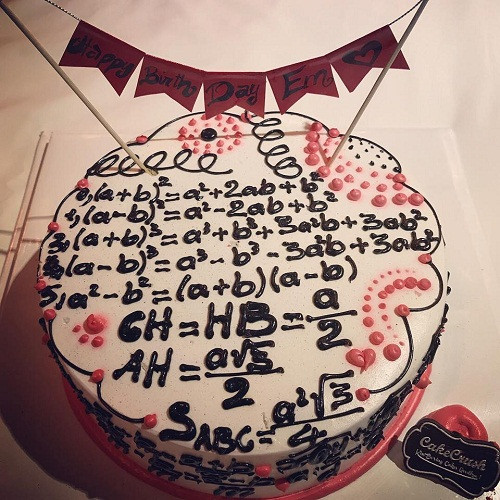 Happy Birth Day Em
1, (a+b)² = a²+2ab+b²
2, (a-b)² = a²-2ab+b²
3, (a+b)³ = a³+b³+3a²b+3ab²
4, (a-b)³ = a³-b³-3a²b+3ab²
5, a²-b² = (a+b)(a-b)
CH = HB = a/2
AH = a√3/2
S_ABC = a²√3/4
CakeCrush